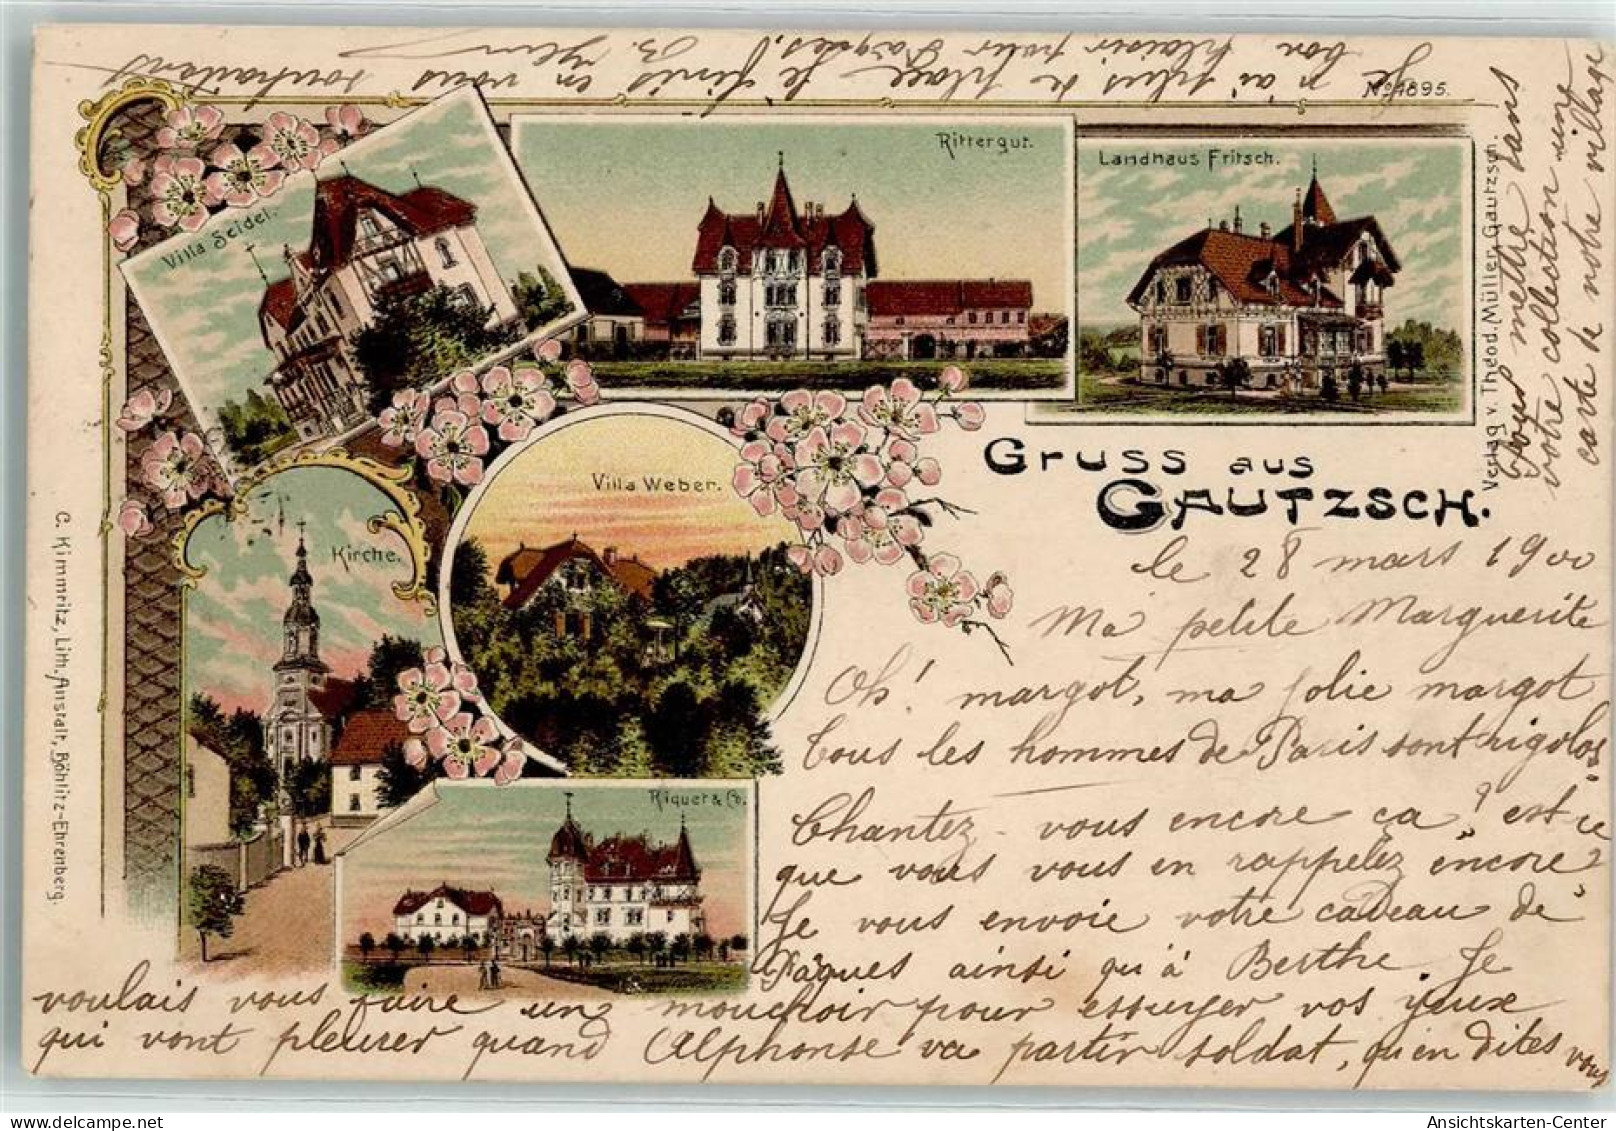 Je n'ai plus de place. Je finis en vous souhaitant
bon plaisir pour Pâques. B.
No 4895.
Villa Seidel.
Rittergut.
Landhaus Fritsch.
Verlag v. Theod. Müller, Gautzsch.
Vous mettre dans
votre collection une
carte de notre village
Villa Weber.
Kirche.
Riquet & Co.
C. Kimmritz, Lith. Anstalt, Böhlitz-Ehrenberg.
Gruss aus
Gautzsch.
le 28 mars 1900
Ma petite Marguerite
Oh! margot, ma jolie margot
Tous les hommes de Paris sont rigolos
Chantez-vous encore ça? est ce
que vous vous en rappelez encore?
Je vous envoie votre cadeau de
Pâques ainsi qu'à Berthe. Je
voulais vous faire un mouchoir pour essuyer vos yeux
qui vont pleurer quand Alphonse va partir soldat, qu'en dites vous
Ansichtskarten-Center